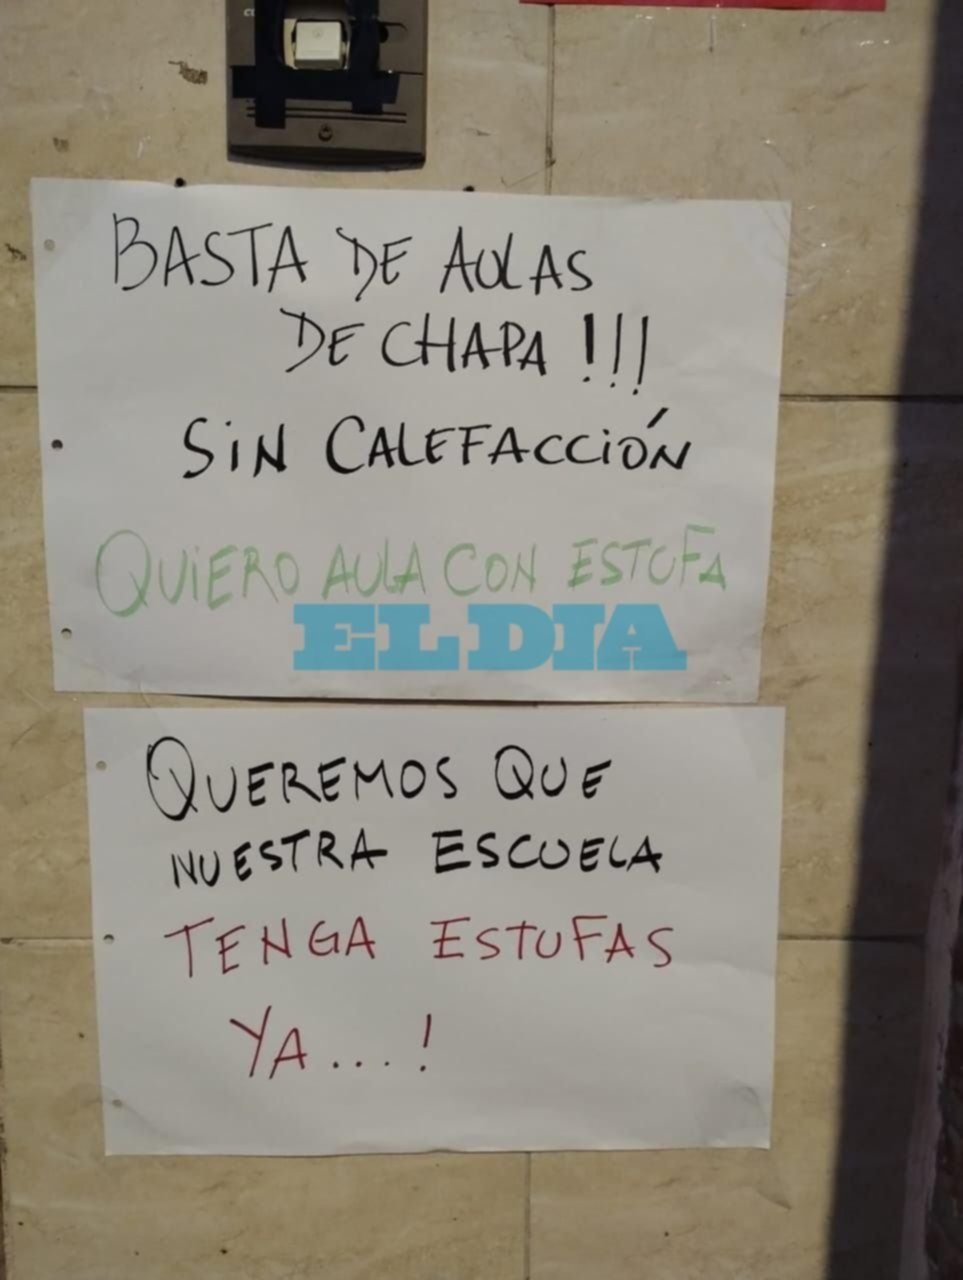 BASTA DE AULAS
DE CHAPA !!!
SiN CALEFACCiÓN
QUiERO AULA CON ESTUFA
EL DIA
QUEREMOS QUE
NUESTRA ESCUELA
TENGA ESTUFAS
YA...!